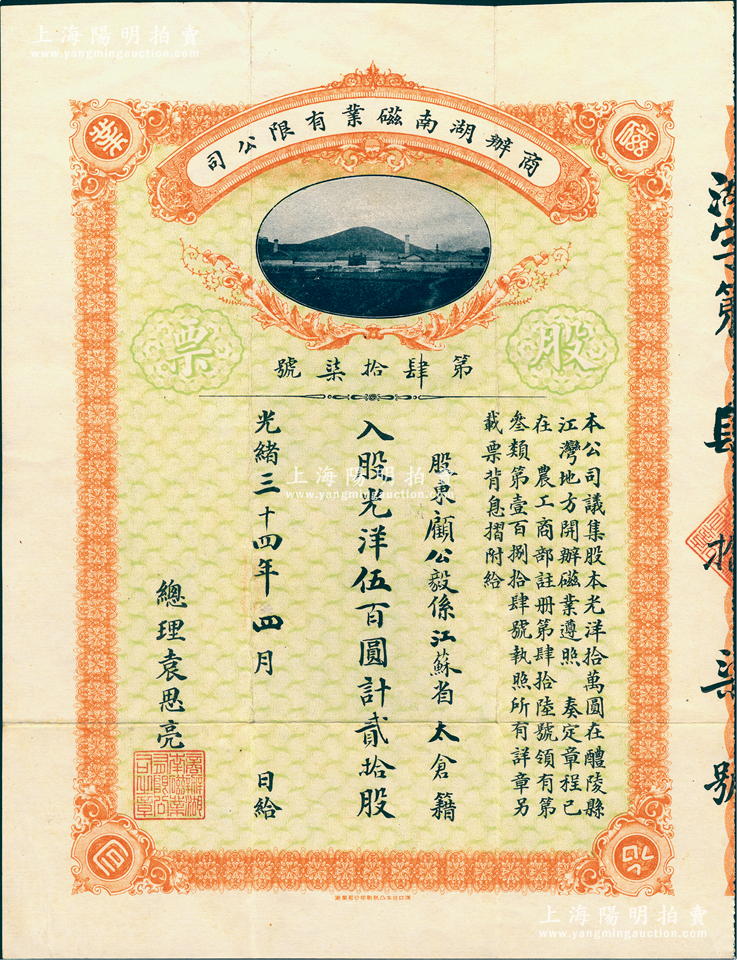 上海陽明拍賣
www.yangmingauction.com
商辦湖南磁業有限公司
磁
業
公
司
股
票
第肆拾柒號
本公司議集股本光洋拾萬圓在醴陵縣
江灣地方開辦磁業遵照 奏定章程已
在 農工商部註册第肆拾陸號領有第
叁類第壹百捌拾肆號執照所有詳章另
載票背息摺附給
股東顧公毅係江蘇省太倉籍
入股光洋伍百圓計貳拾股
光緒三十四年四月 日給
總理袁思亮
商辦湖南磁業有限公司之章
第肆拾柒號
上海陽明拍賣
www.yangmingauction.com
上海陽明拍賣
www.yangmingauction.com